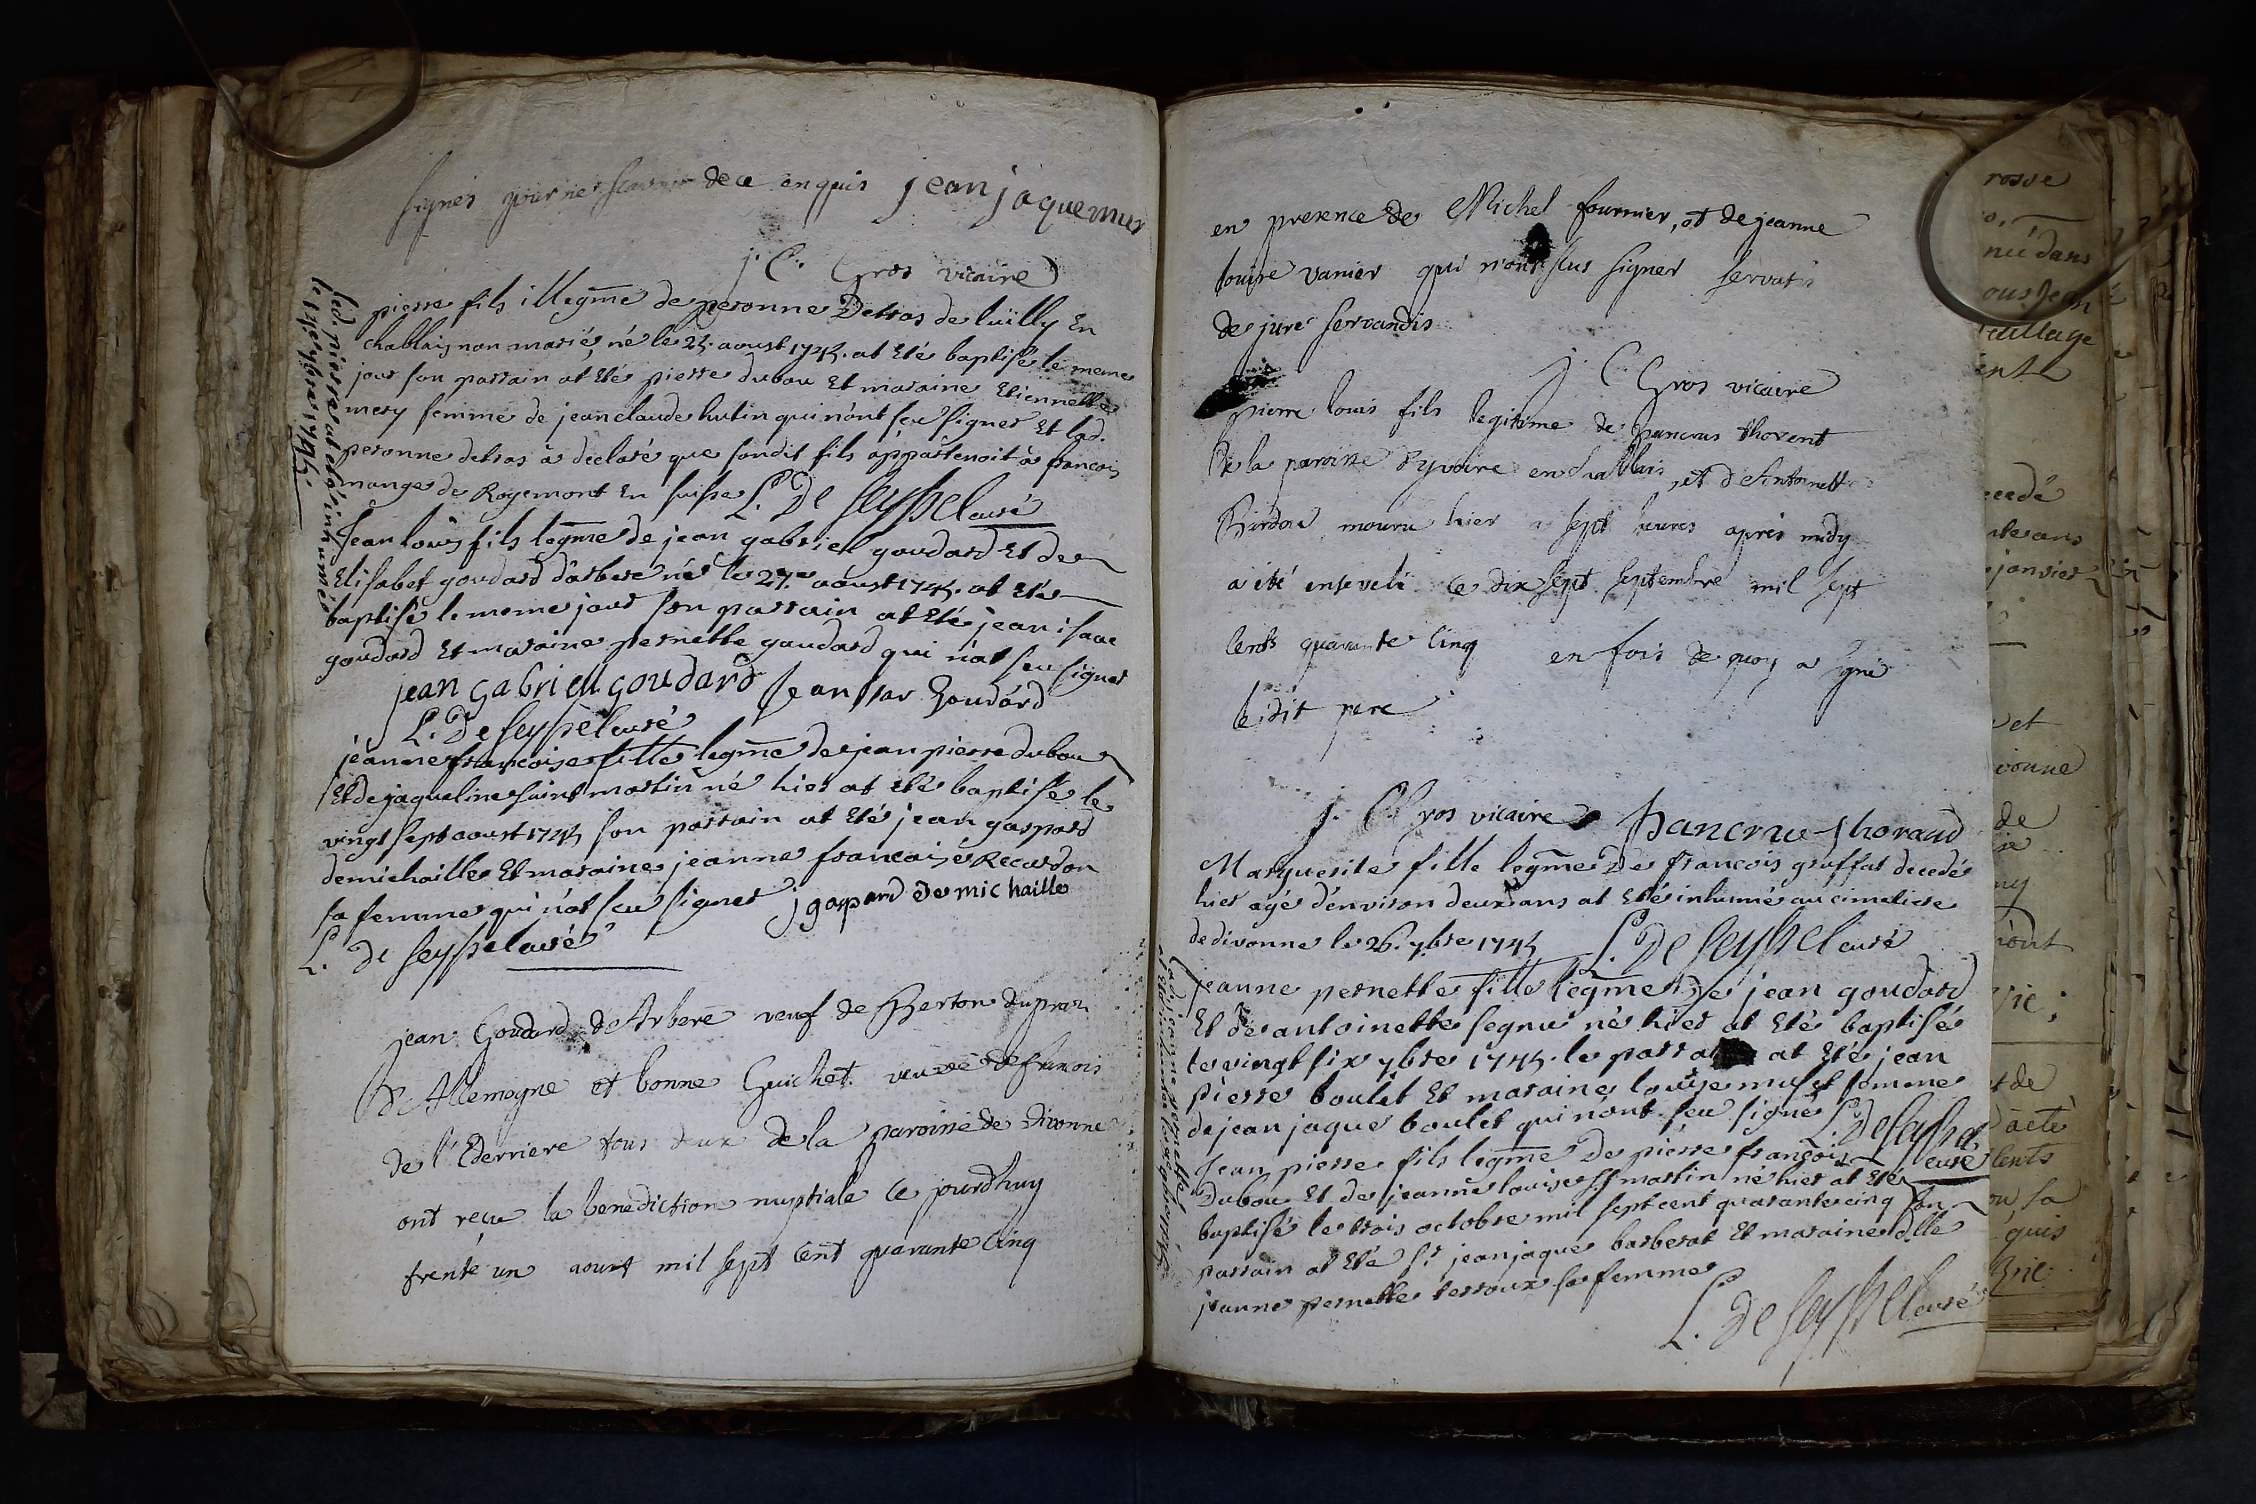 signer pour ne scavoir de ce enquis jean jaquemus
j. C. Gros vicaire
pierre fils illegme de peronne Detras de lüilly En
chablaij non mariés, né le 25. aoust 1745. at Eté baptisé le meme
jour son parrain at Eté pierre dubou Et maraine Etiennette
mery femme de jean claude hutin qui n'ont sçu signer Et lad.
peronne detras a declaré que sondit fils appartenoit a francois
mange de Rogemont En suisse L. De Seyssel curé
led. pierre at eté inhumé
le 1745
Jean louis fils legme de jean gabriel goudard Et de
Elisabet goudard d'arbere né le 27e aoust 1745. at Eté
baptisé le meme jour son parrain at Eté jean isaac
goudard Et maraine pernette goudard qui n'at sçu signer
jean gabriell goudard Jean isac Goudard
L. De Seyssel curé
jeanne francoise fille legme de jean pierre dubou
Et de jaqueline saint martin né hier at eté baptisé le
vingt sept aoust 1745 son parrain at Eté jean gaspard
demichaille Et maraine jeanne francaise Recordon
sa femme qui n'at sçu signer j gaspard de michaille
L. de Seyssel curé
jean Goudard de Arbere veuf de Berton dupraz
d'Allemogne et bonne Guichet veuve de francois
de l'Ederriere tous deux de la paroisse de Divonne
ont reçu la benediction nuptiale ce jourdhuy
trente un aoust mil sept cent quarante cinq
en presence de Michel fournier, et de jeanne
louise vanier qui n'ont sçus signer servatis
de jure servandis
j. C Gros vicaire
pierre louis fils legitime de pancras thorent
de la paroisse d'yvoire en chablais, et d'Antoinette
Birdon mouru hier a sept heures après midy
a été enseveli ce dix sept septembre mil sept
cents quarante cinq en fois de quoy a signé
le dit pere
j. C Gros vicaire pancrace thoraud
Marguerite fille legme De francois gruffat decedé
hier agé d'environ deux ans at Eté inhumé au cimetiere
de divonne le 26. 7bre 1745 L. De Seyssel curé
jeanne pernette fille legme De jean goudard
Et de antoinette segnu né hier at Eté baptisé
le vingt six 7bre 1745. le parrain at Eté jean
pierre boulet Et maraine louise muset femme
de jean jaque boulet qui n'ont sçu signé L. De Seyssel
curé
lad. jeanne pernette
Jean pierre fils legme De pierre françois
Dubou Et de jeanne louise St martin né hier at Eté
baptisé le trois octobre mil sept cent quarante cinq son
parrain at Eté Sr jean jaque barberat Et maraine dlle
jeanne pernette terroux sa femme
L. De Seyssel curé